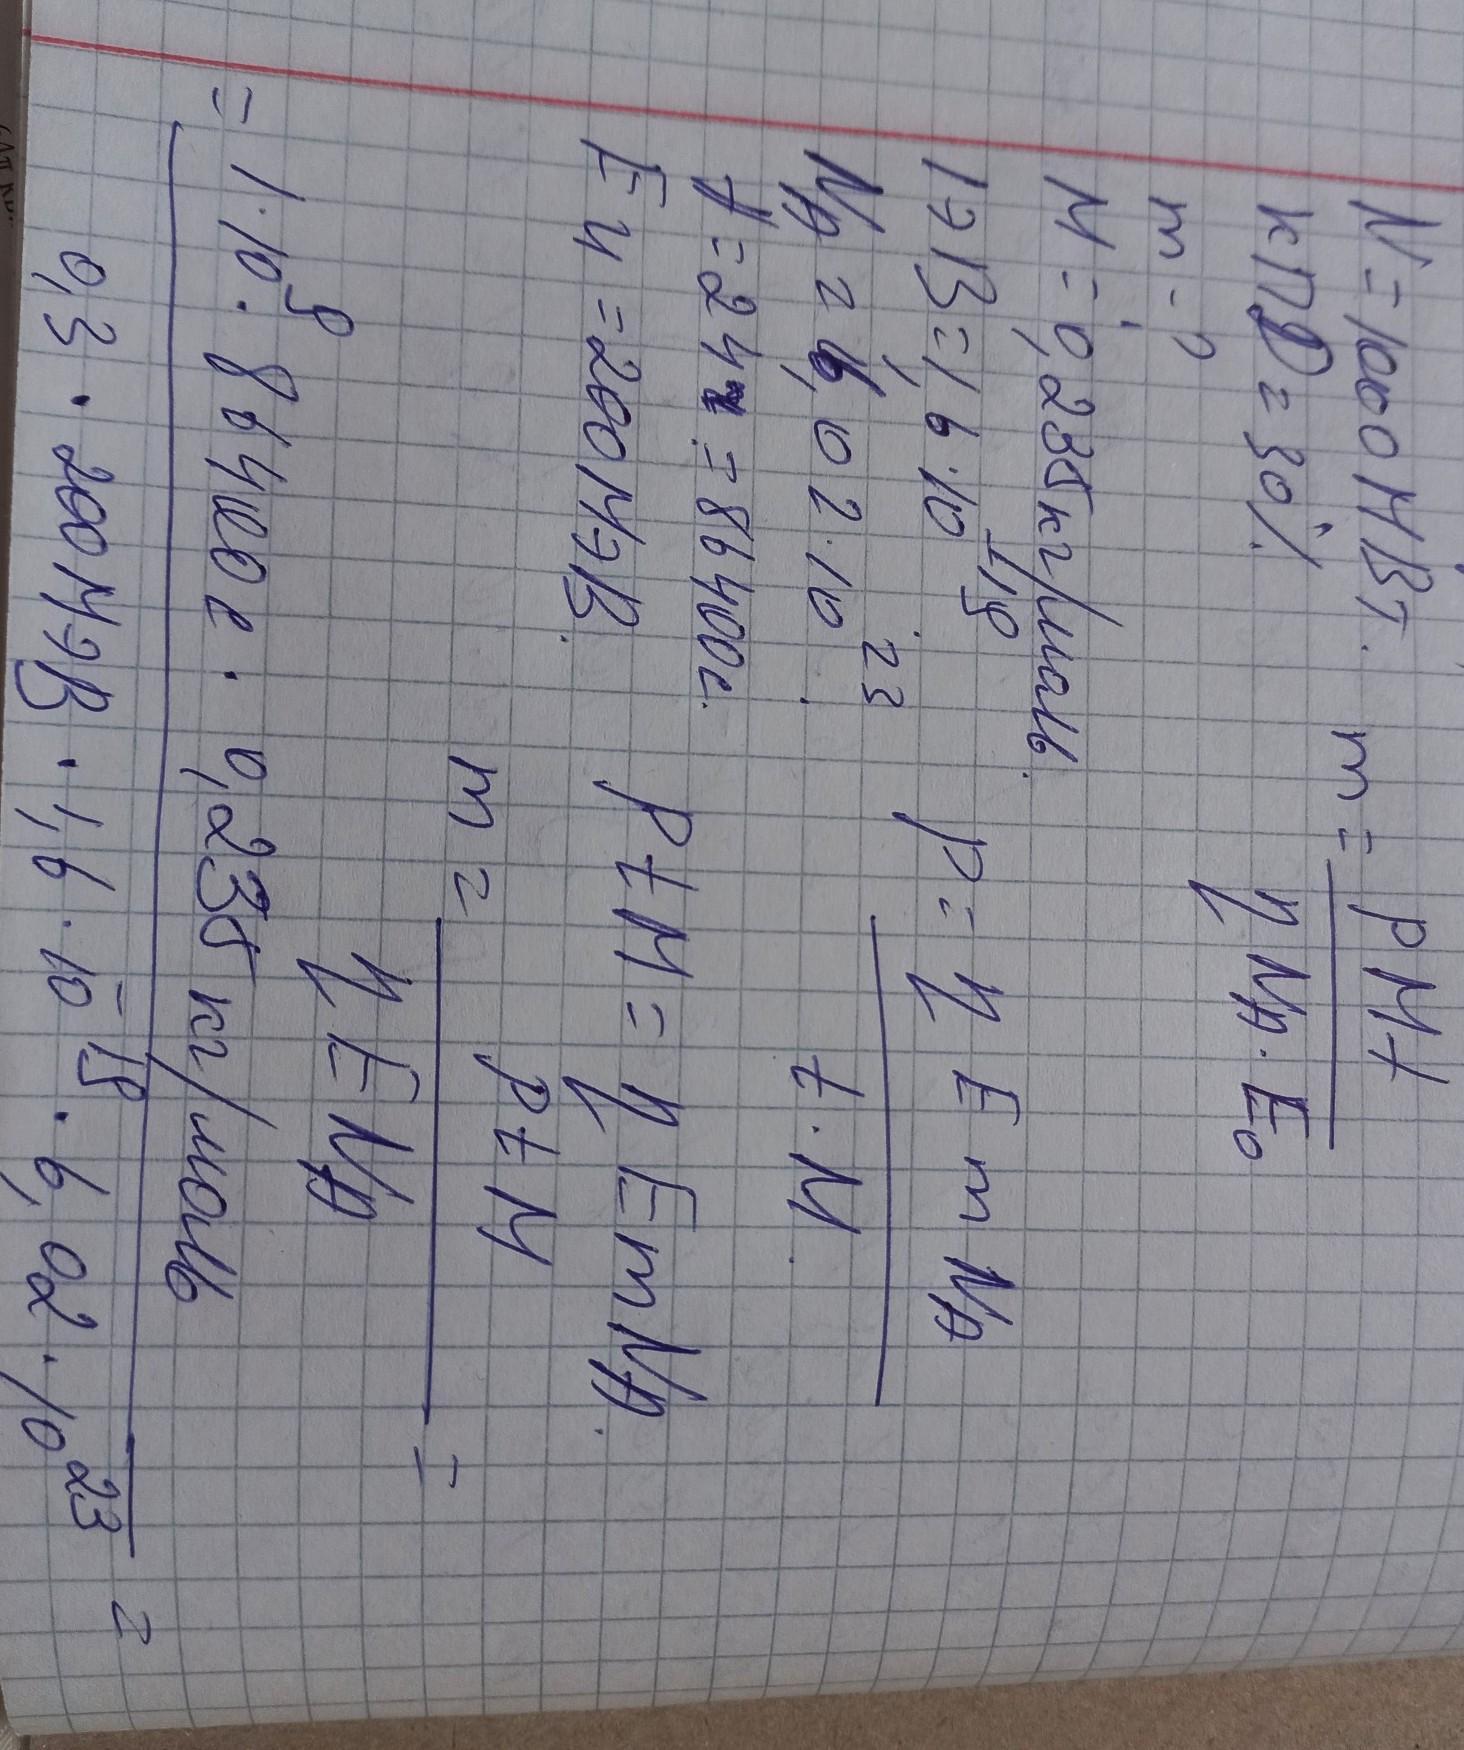 N = 1000 МВт.
КПД = 30%
m - ?
M = 0,235 кг/моль.
1эВ = 1,6·10⁻¹⁹
Nₐ = 6,02·10²³
t = 24ч = 86400с.
Eч = 200МэВ.
m = PMt / η Nₐ·E₀
P = η E m Nₐ / t·M.
P t M = η E m Nₐ.
m = P t M / η E Nₐ =
= 1·10⁹·86400с·0,235 кг/моль / 0,3·200МэВ·1,6·10⁻¹⁹·6,02·10²³ =